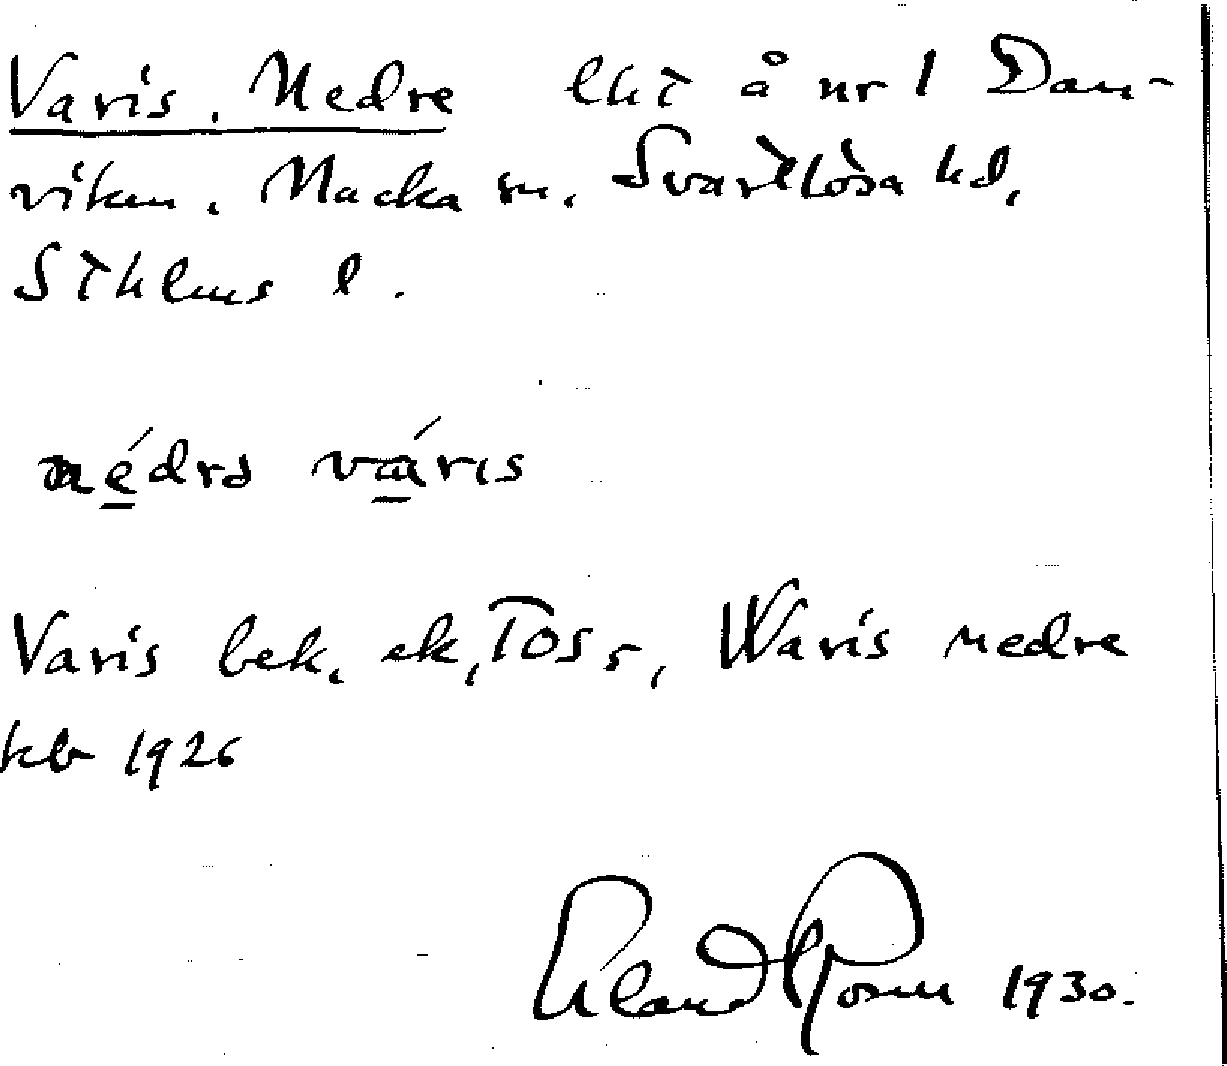 Varis, Nedre lht å nr 1 Dan-
viken, Nacka sn, Svartlösa hd,
Sthlms l.
nédrə váris
Varis bek. ek, TOSs, Waris nedre
kb 1926
Erland Rosell 1930.